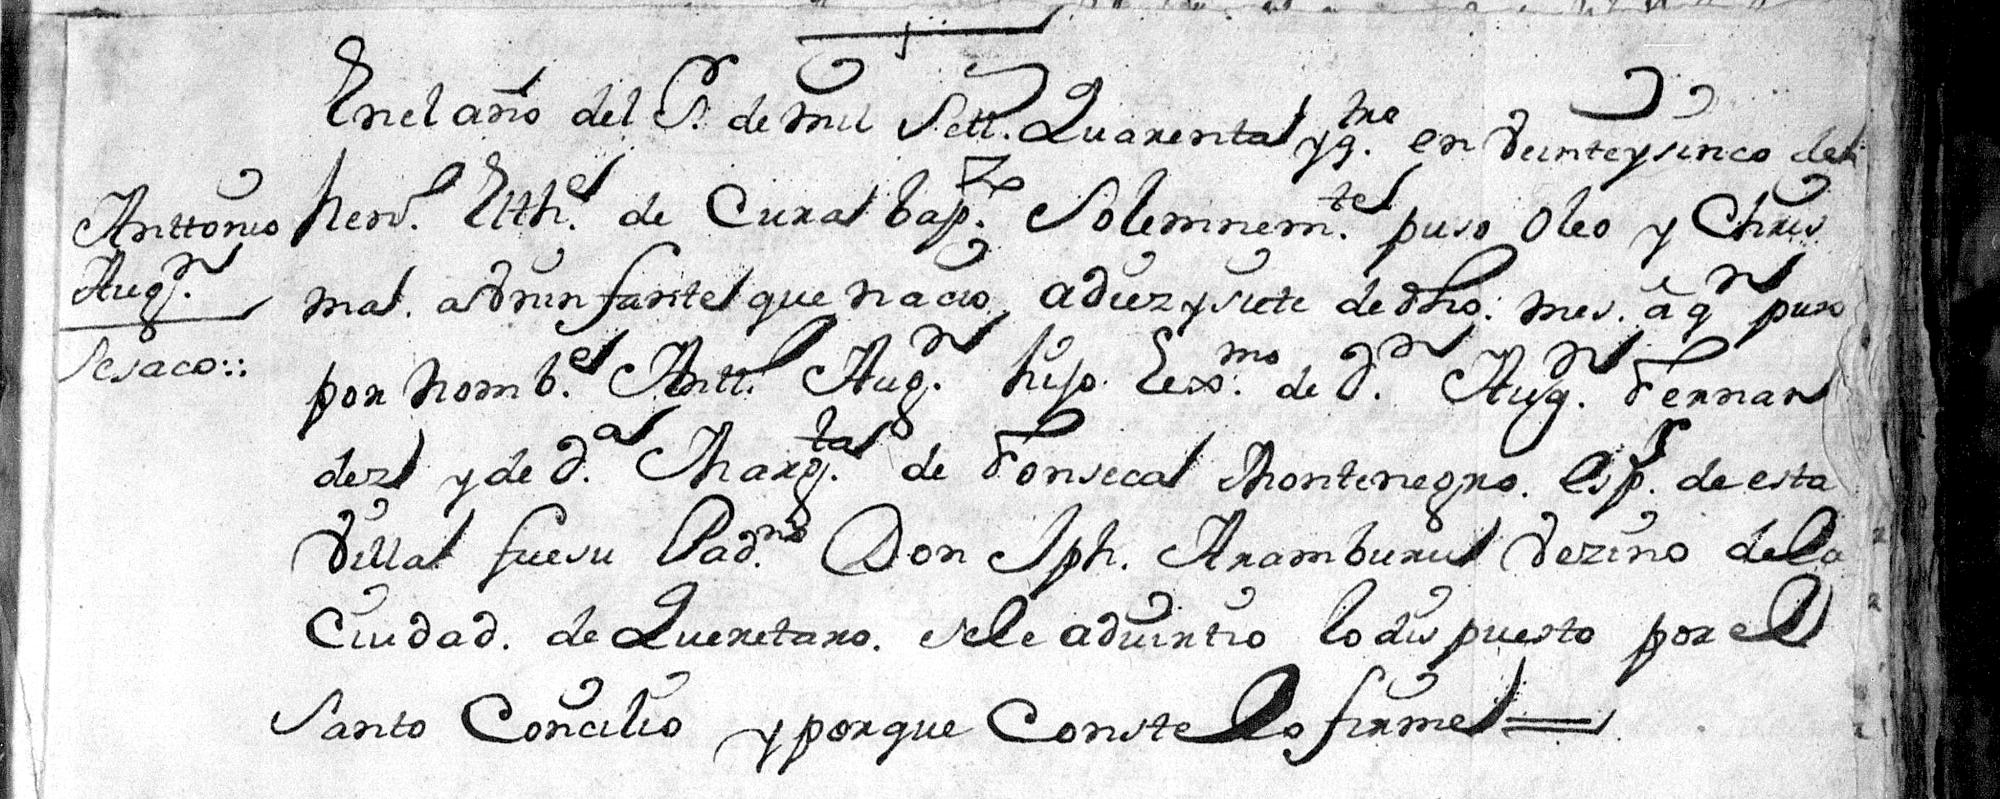 En el año del S.r de mil Sett. Quarenta y q.tro en Veinte y sinco de
Anttonio
Aug.n
Se saco::
hen.o el Bth.el de Cura bap.zo Solemnem.te puso oleo y Chris
ma. a Vn infante que nacio a diez y siete de dho. mes. â q.n puso
por nomb.e Antt. Aug.n hijo Lex.mo de d.n Aug.n Fernan
dez y de d.a Marg.ta de Fonseca Montenegro. Esp.s de esta
Villa fue su Pad.no Don Jph. Aramburu Vezino de la
Ciudad. de Queretaro. se le advirtio lo dispuesto por el
Santo Concilio y porque Conste lo firme